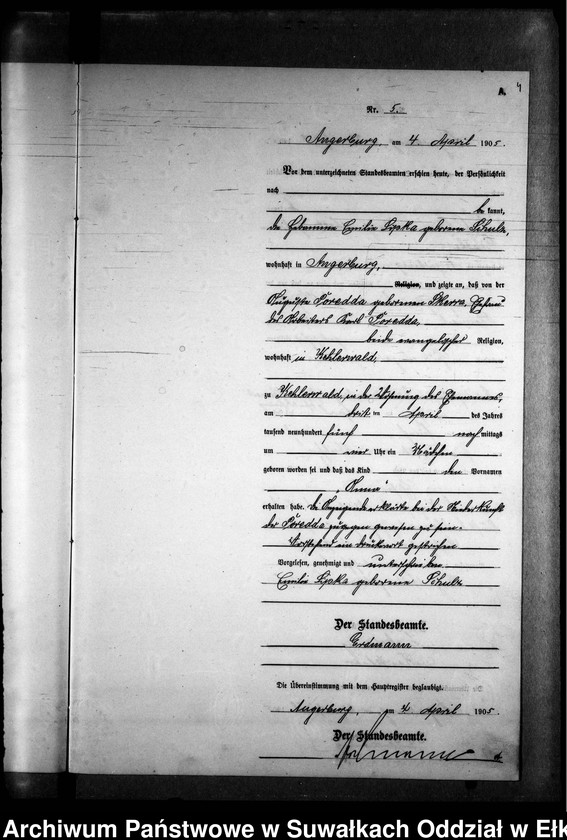 A. 4
Nr. 5.
Angerburg, am 4 April 1905.
Vor dem unterzeichneten Standesbeamten erschien heute, der Persönlichkeit
nach
be kannt,
die Hebamme Emilie Lyska geborene Schulz,
wohnhaft in Angerburg,
Religion, und zeigte an, daß von der
Auguste Poredda geborenen Skerra, Ehefrau
des Arbeiters Karl Poredda,
beide evangelischer Religion,
wohnhaft in Kehlerwald,
zu Kehlerwald, in der Wohnung des Ehemannes,
am dritten April des Jahres
tausend neunhundert fünf nachmittags
um vier Uhr ein Mädchen
geboren worden sei und daß das Kind den Vornamen
„Anna"
erhalten habe. Die Anzeigende erklärte bei der Niederkunft
der Poredda zugegen gewesen zu sein.
Vorstehend ein Druckwort gestrichen
Vorgelesen, genehmigt und unterschrieben
Emilie Lyska geborene Schulz
Der Standesbeamte.
Erdmann
Die Übereinstimmung mit dem Hauptregister beglaubigt.
Angerburg, am 4 April 1905.
Der Standesbeamte.
Erdmann
Archiwum Państwowe w Suwałkach Oddział w Ełk